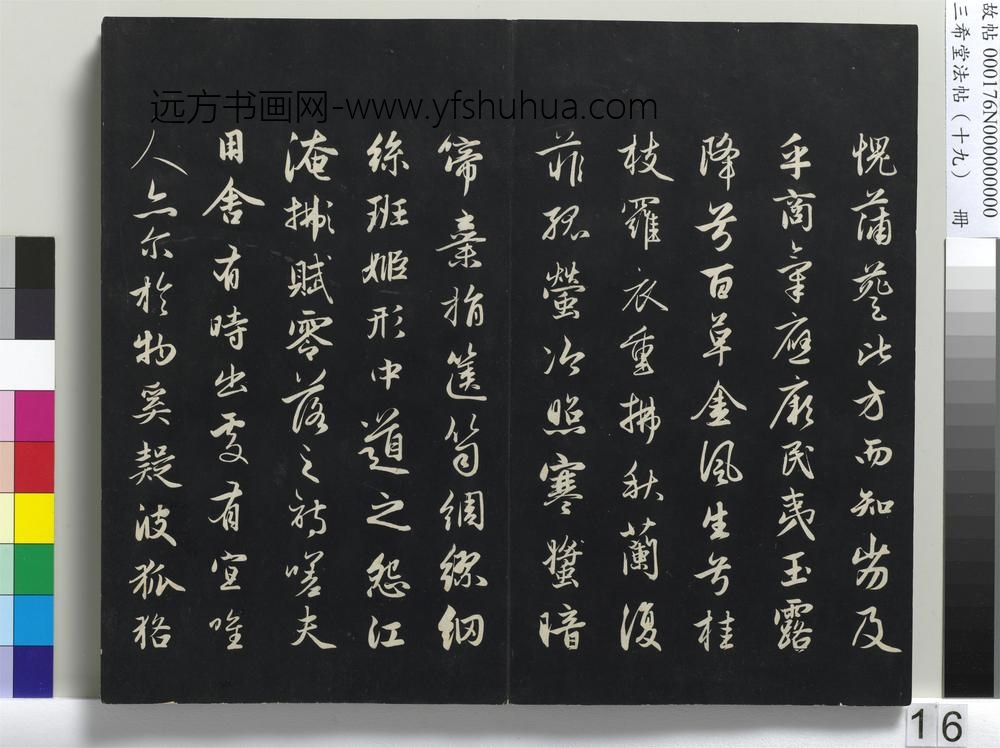 愧蒲葵比方而知劣及
乎商氣應厥民夷玉露
降兮百草金風生兮桂
枝羅衣重拂秋蘭復
菲孤螢冷照寒螿暗
啼棄捐篋笥綢繆網
絲班姬形中道之怨江
淹賦零落之詩嗟夫
用舍有時出處有宜唯
人亦尔於物奚疑彼狐狢
远方书画网-www.yfshuhua.com
故帖 000176N000000000
三希堂法帖（十九） 冊
16